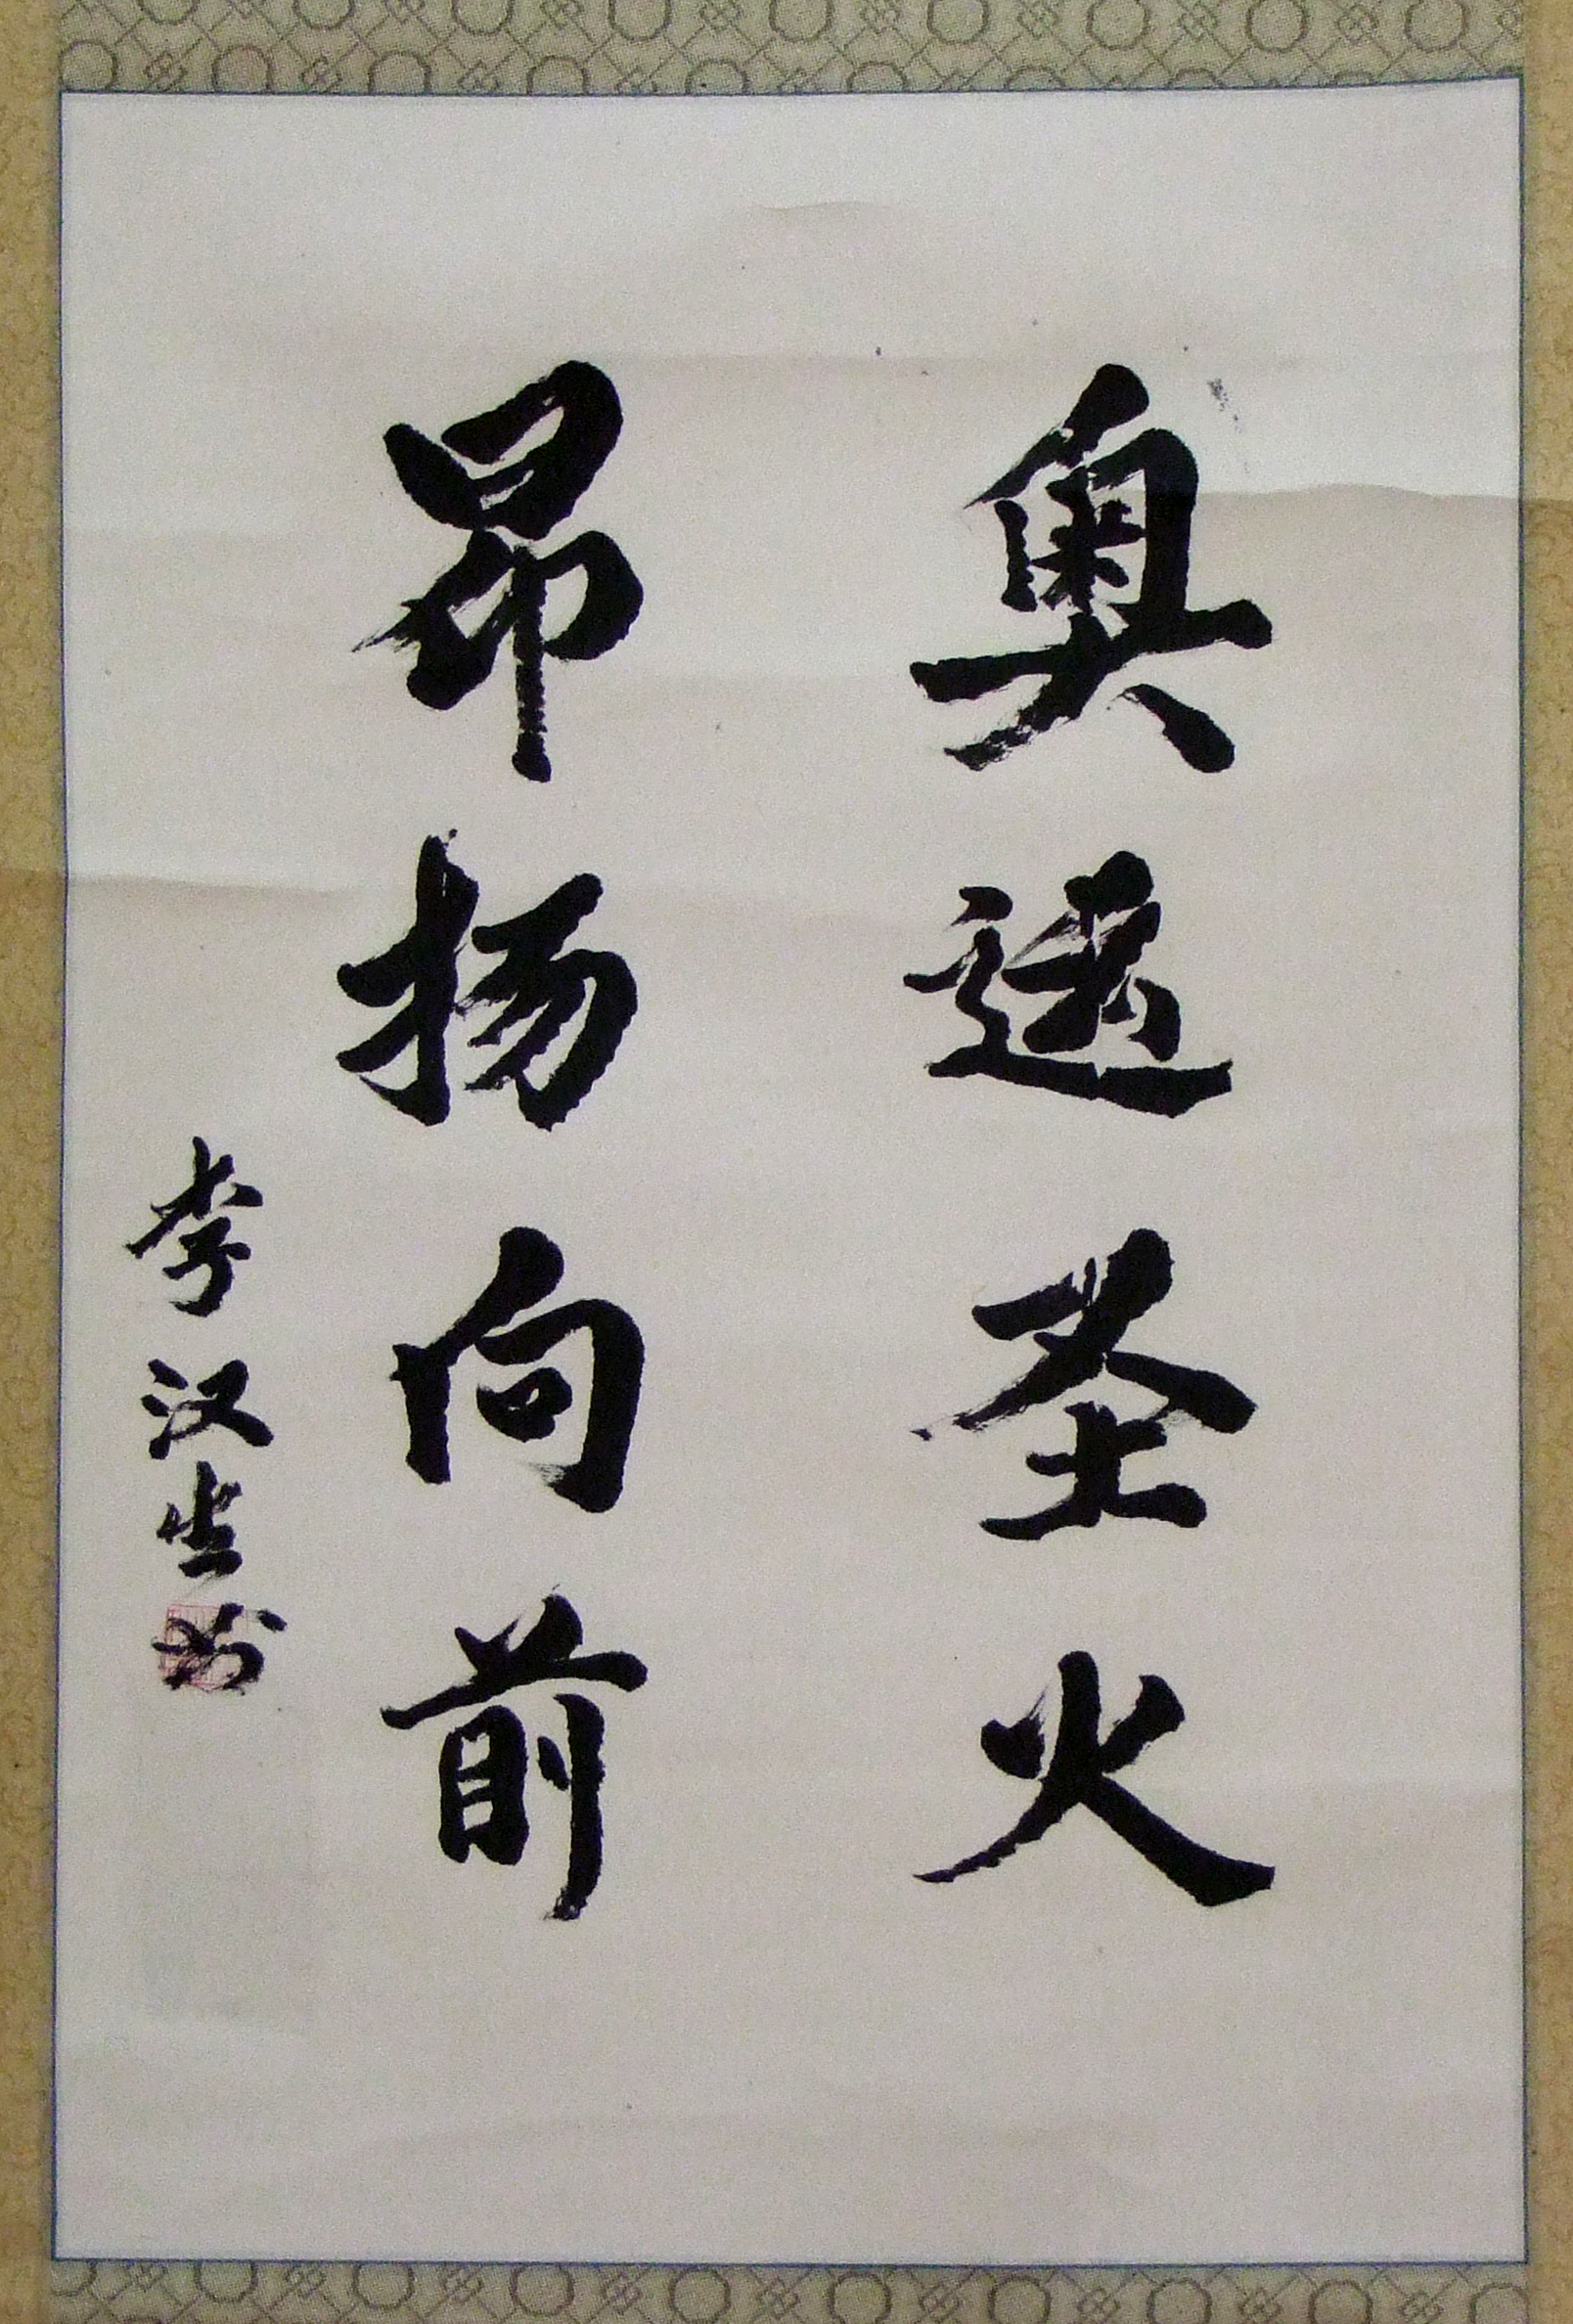 奥运圣火
昂扬向前
李汉生